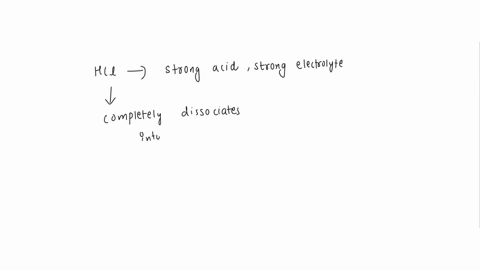 HCl → strong acid, strong electrolyte
↓
completely dissociates
into